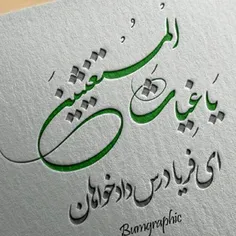 یَا غِیَاثَ الْمُسْتَغِیثِینَ
ای فریادرس دادخواهان
Bumgraphic